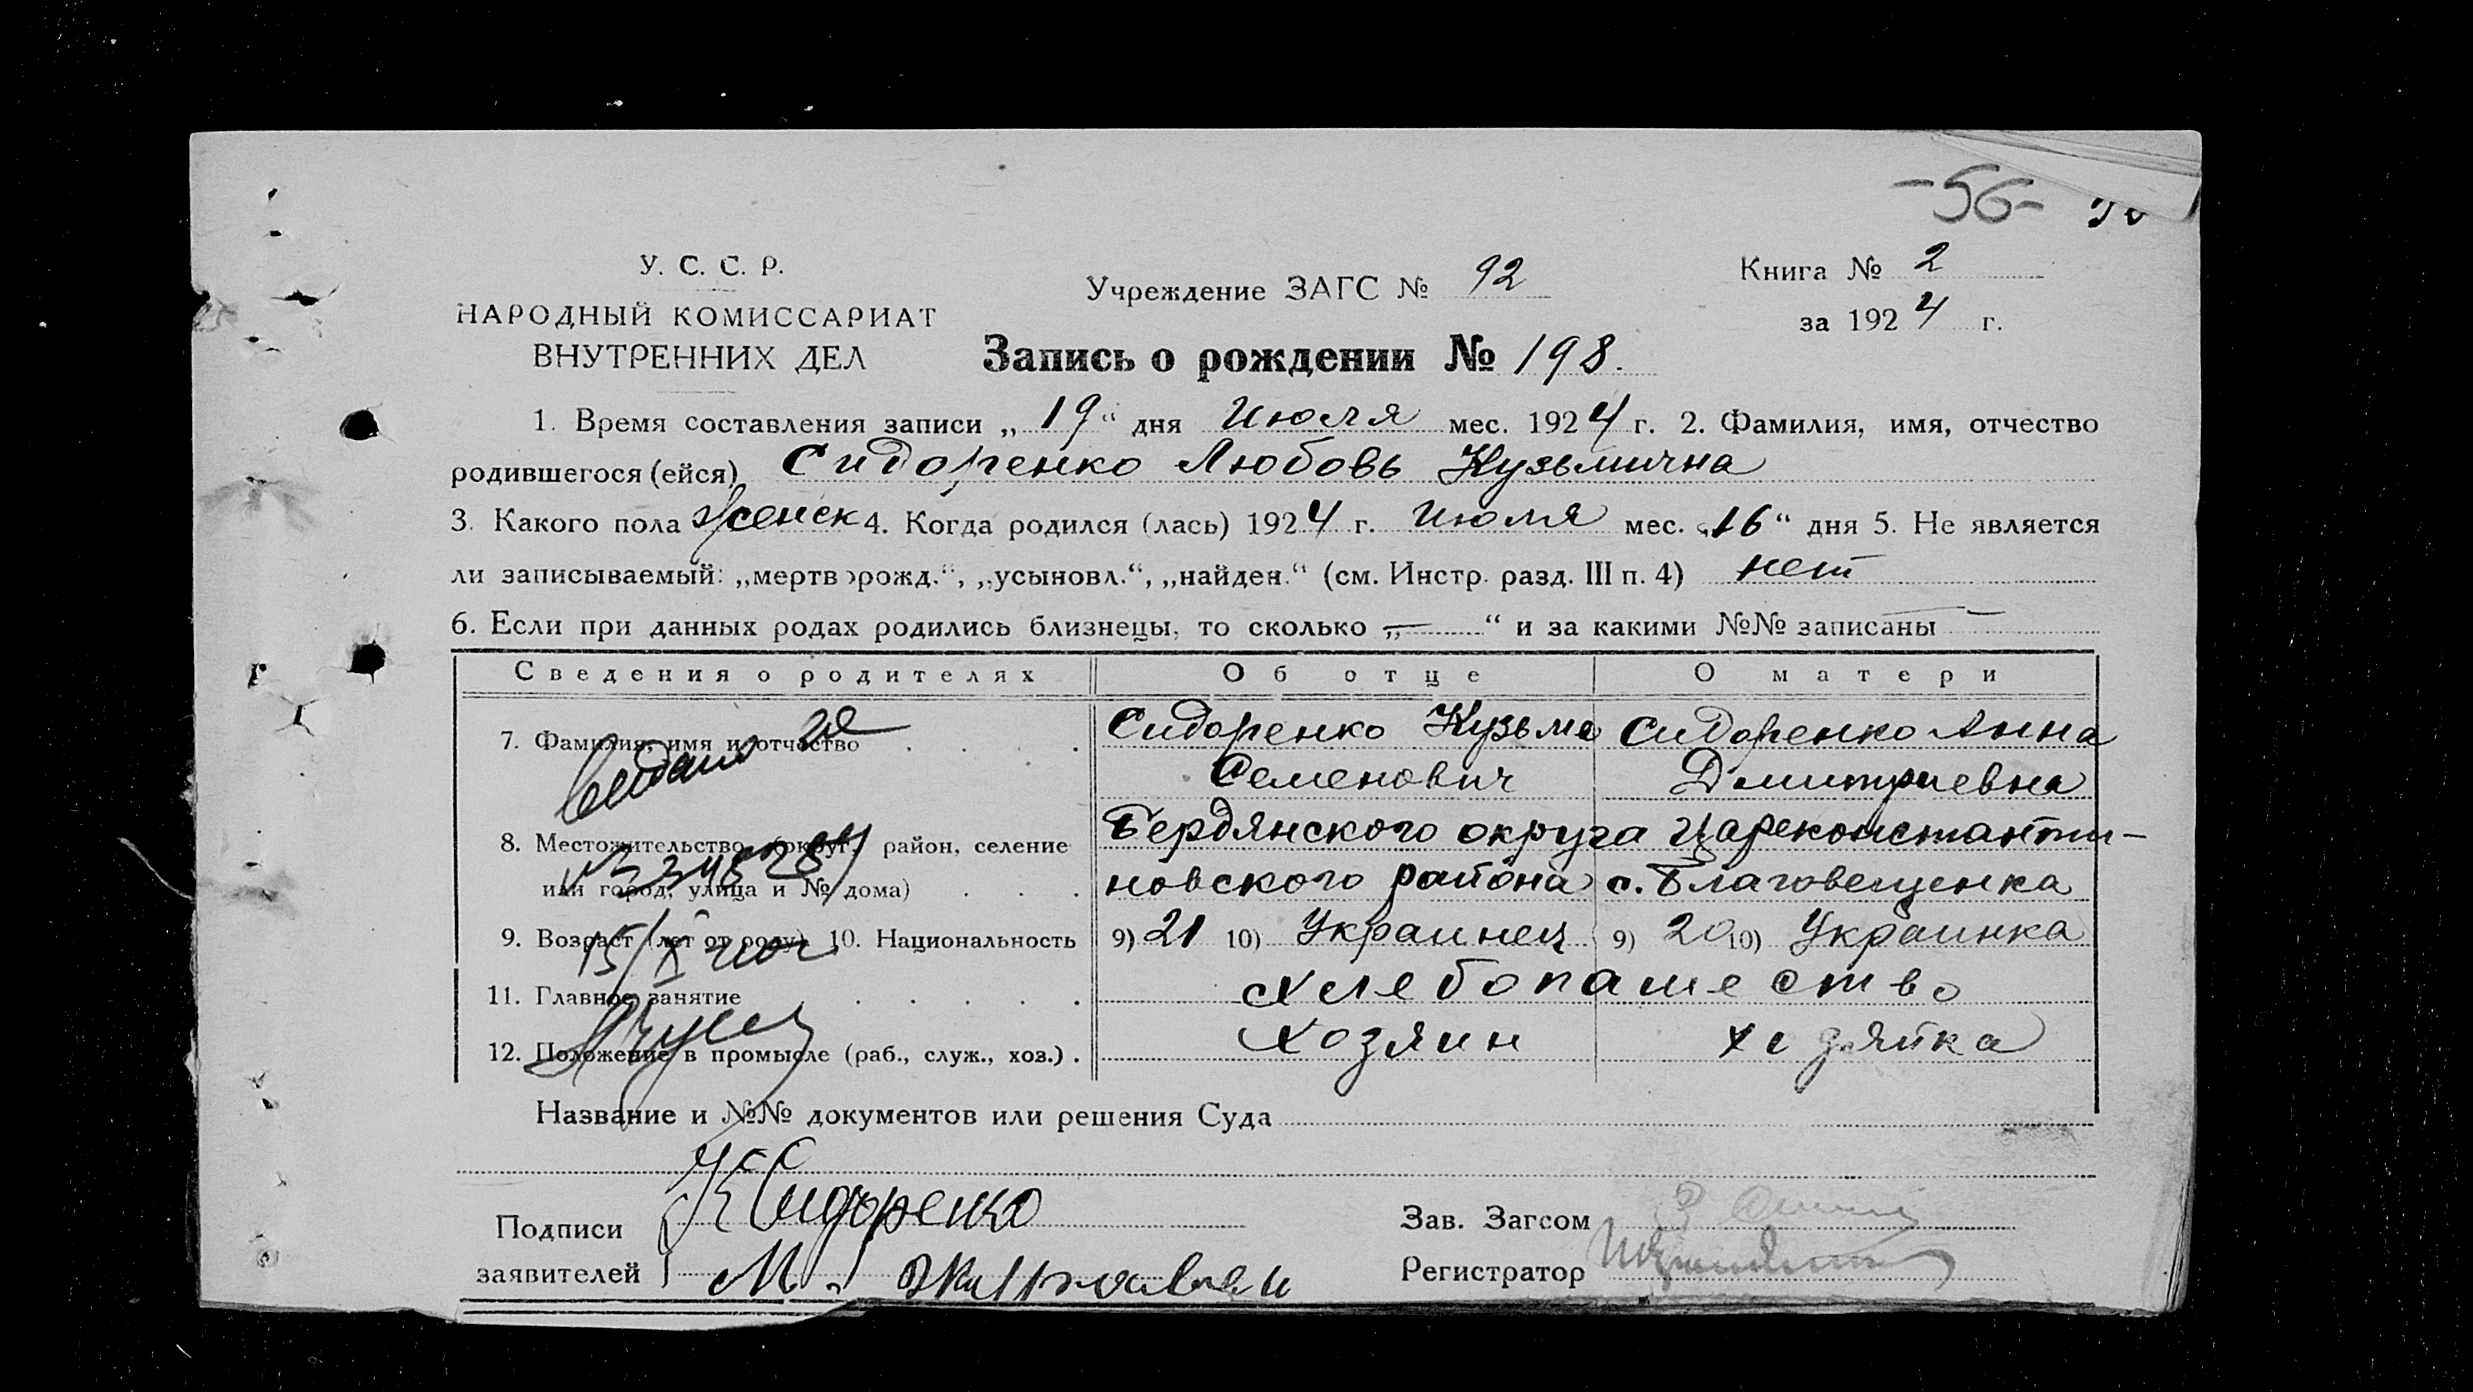 -56-
У. С. С. Р.
НАРОДНЫЙ КОМИССАРИАТ
ВНУТРЕННИХ ДЕЛ
Учреждение ЗАГС № 92
Книга № 2
за 1924 г.
Запись о рождении № 198.
1. Время составления записи „19“ дня Июля мес. 1924 г. 2. Фамилия, имя, отчество
родившегося (ейся) Сидоренко Любовь Кузьмична
3. Какого пола женск 4. Когда родился (лась) 1924 г. Июля мес. „16“ дня 5. Не является
ли записываемый: „мертворожд.“, „усыновл.“, „найден.“ (см. Инстр. разд. III п. 4) нет
6. Если при данных родах родились близнецы, то сколько „—“ и за какими №№ записаны —
Сведения о родителях Об отце О матери
7. Фамилия, имя и отчество . . . Сидоренко Кузьма Сидоренко Анна
Семенович Дмитриевна
8. Местожительство (округ, район, селение Бердянского округа Цареконстанти-
или город, улица и № дома) . . . новского района с. Благовещенка
9. Возраст (лет от роду) 10. Национальность 9) 21 10) Украинец 9) 20 10) Украинка
11. Главное занятие . . . . . Хлебопашество
12. Положение в промысле (раб., служ., хоз.) . Хозяин хозяйка
Название и №№ документов или решения Суда
Подписи К Сидоренко
заявителей М.
Зав. Загсом
Регистратор